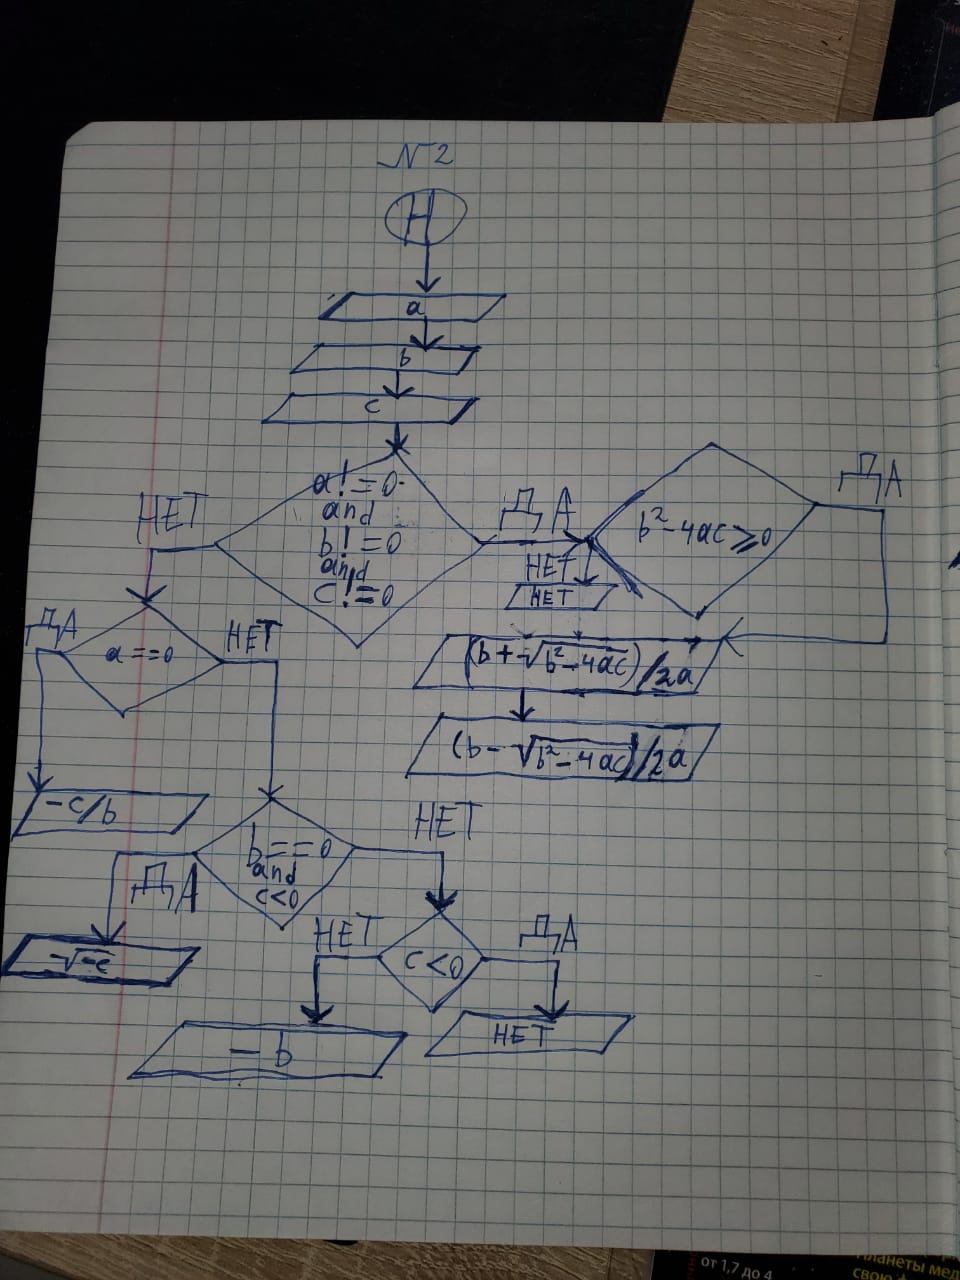 №2
Н
a
b
c
a!=0
and
b!=0
and
c!=0
НЕТ
ДА
b²-4ac≥0
ДА
НЕТ
НЕТ
(b+√b²-4ac)/2a
(b-√b²-4ac)/2a
ДА
a==0
НЕТ
-c/b
b==0
and
c<0
НЕТ
ДА
-√-c
НЕТ
c<0
ДА
-b
НЕТ
от 1,7 до 4